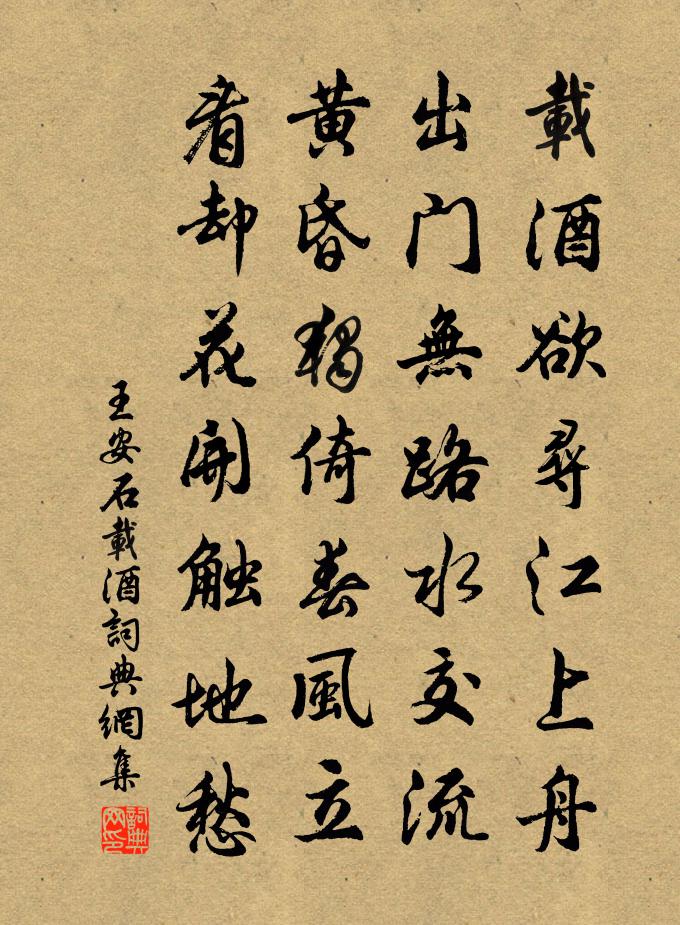 載酒欲尋江上舟
出门無路水交流
黄昏獨倚春風立
看却花開触地愁
王安石載酒詞典網集
詞典网印